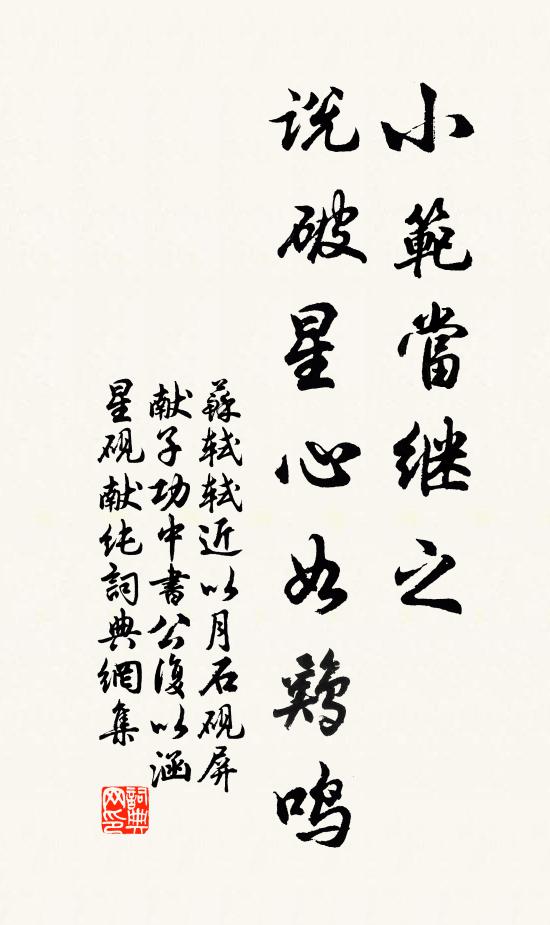 小範當继之
说破星心如鷄鳴
蘇轼轼近以月石砚屏
献子功中書公復以涵
星砚献纯詞典網集
詞典
网印